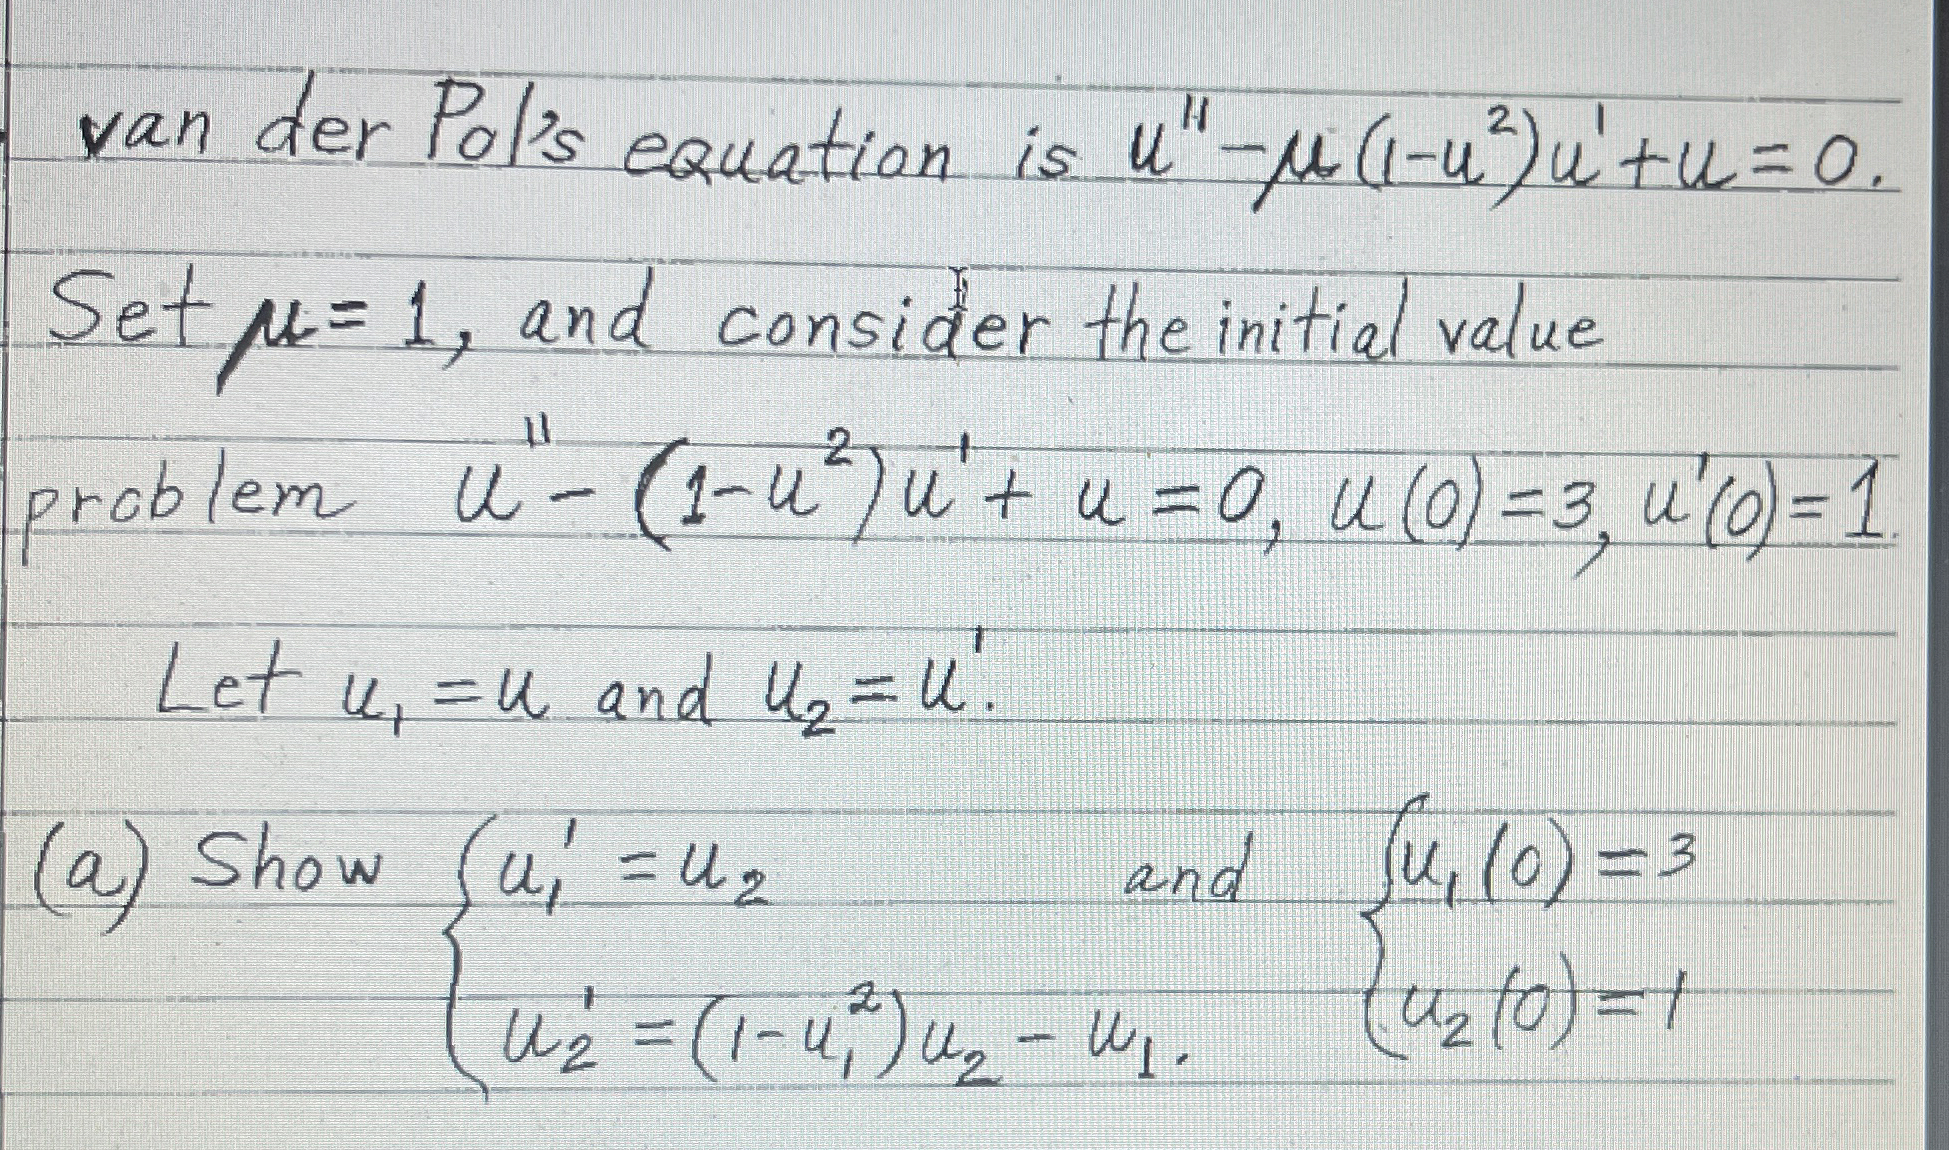 van der Pol's equation is u'' - μ(1-u²)u' + u = 0.
Set μ = 1, and consider the initial value
problem u'' - (1-u²)u' + u = 0, u(0) = 3, u'(0) = 1.
Let u₁ = u and u₂ = u'.
(a) Show { u₁' = u₂ and { u₁(0) = 3
u₂' = (1-u₁²)u₂ - u₁. u₂(0) = 1